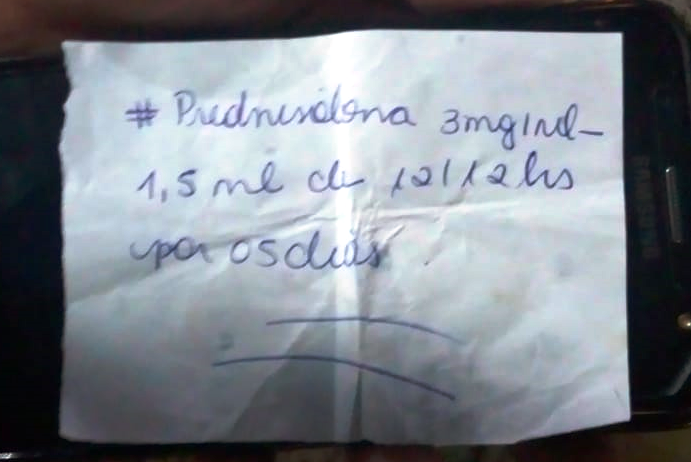 # Prednisolona 3mg/ml_
1,5 ml de 12/12hs
por 05 dias.